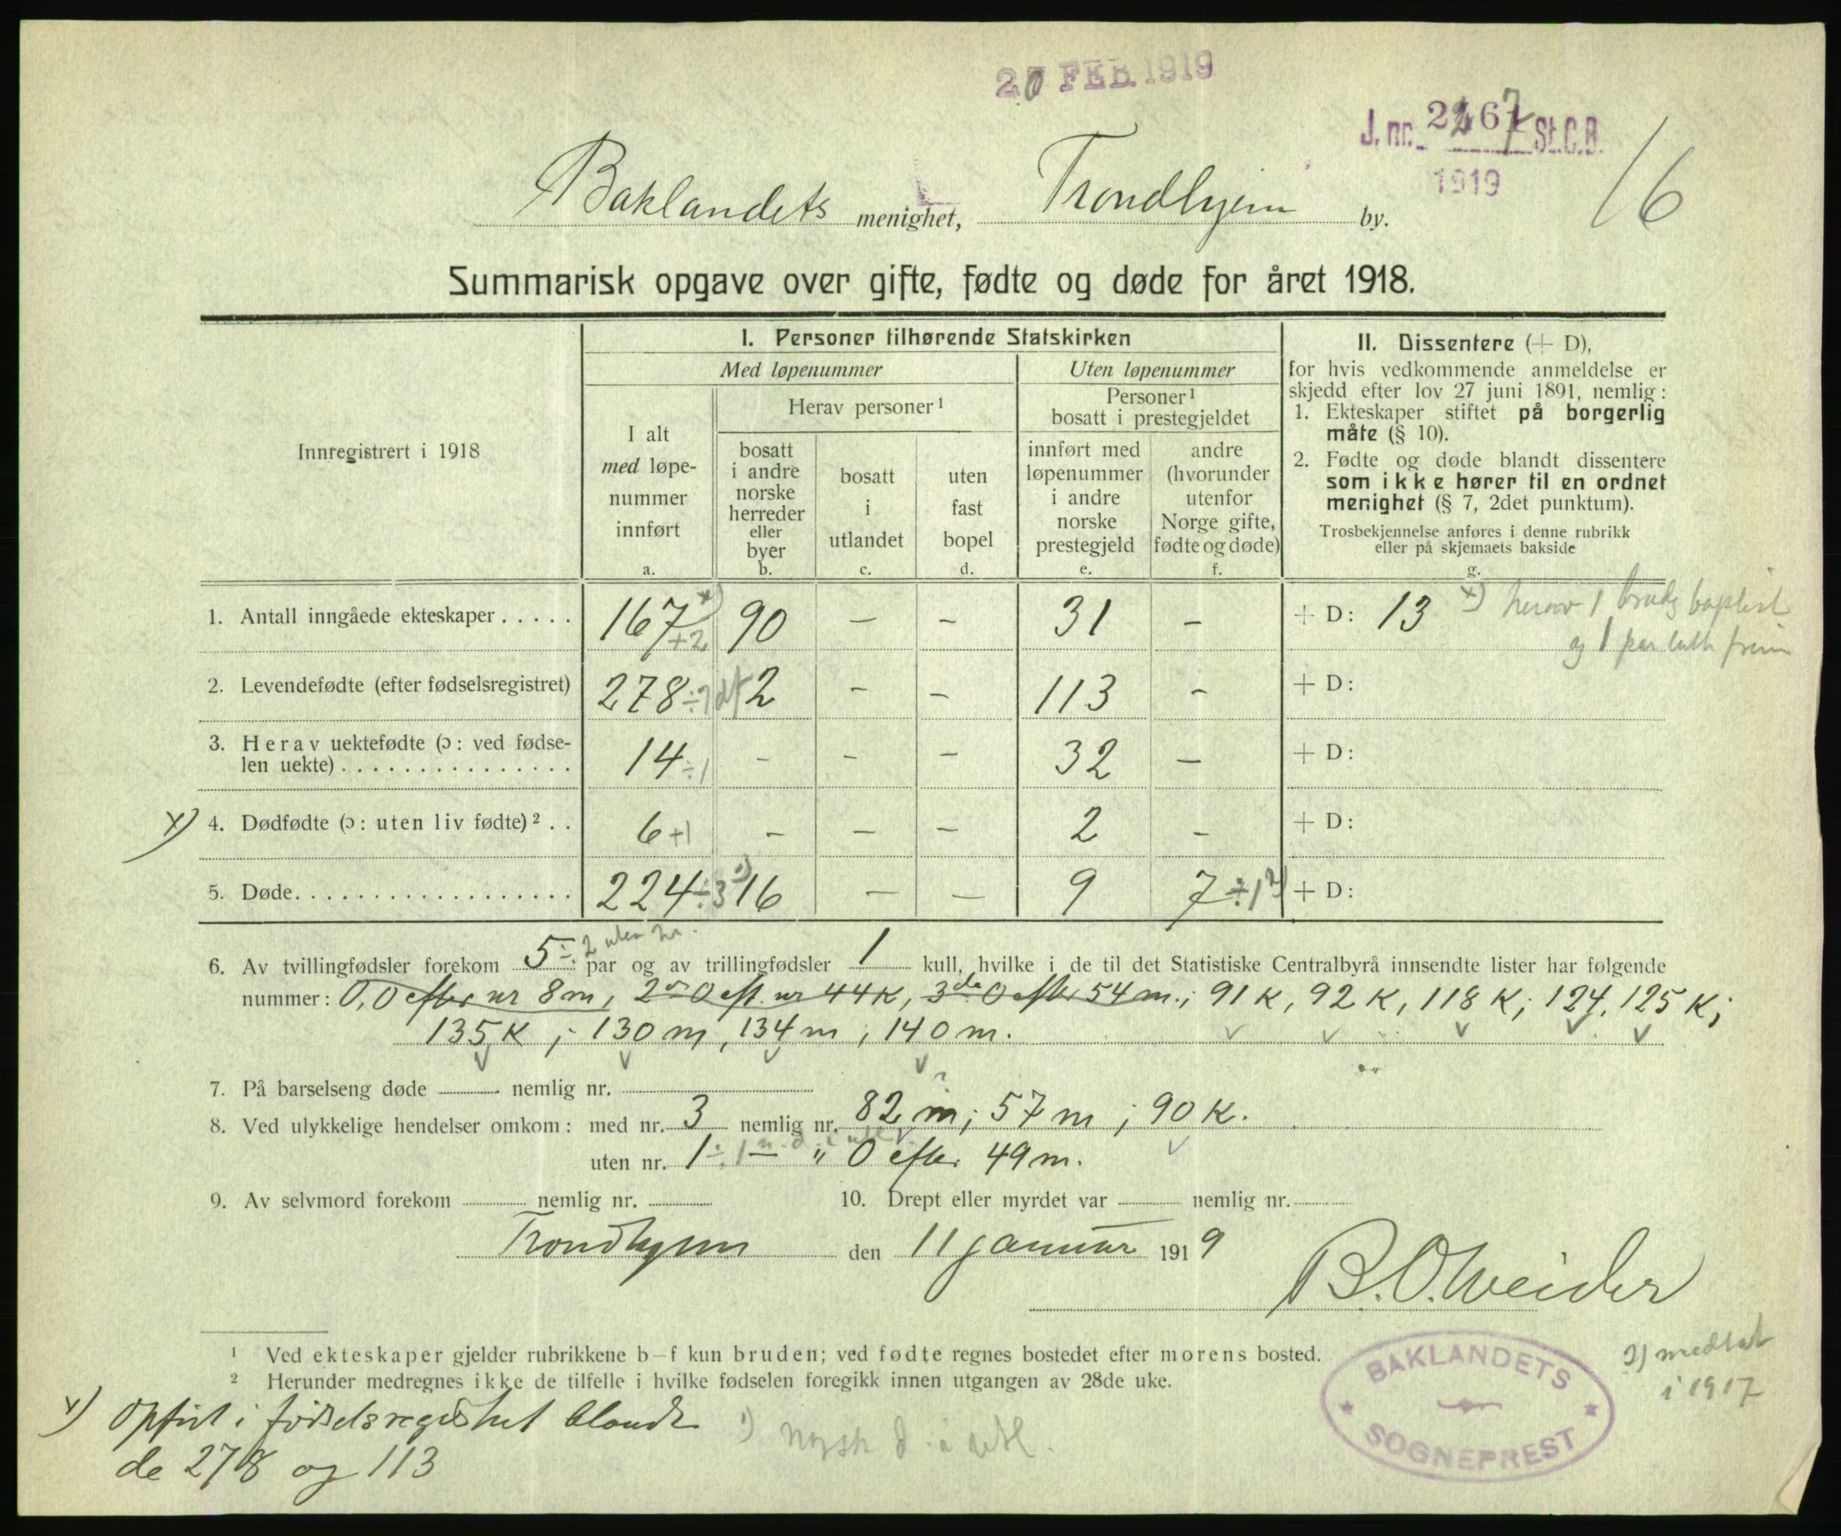 20 FEB. 1919
J. nr. 2267 St.C.B.
1919
16
Baklandets menighet, Trondhjem by.
Summarisk opgave over gifte, fødte og døde for året 1918.
Innregistrert i 1918
I. Personer tilhørende Statskirken
Med løpenummer
Uten løpenummer
I alt
med løpe-
nummer
innført
a.
Herav personer¹
bosatt
i andre
norske
herreder
eller
byer
b.
bosatt
i
utlandet
c.
uten
fast
bopel
d.
Personer¹
bosatt i prestegjeldet
innført med
løpenummer
i andre
norske
prestegjeld
e.
andre
(hvorunder
utenfor
Norge gifte,
fødte og døde)
f.
II. Dissentere (+ D),
for hvis vedkommende anmeldelse er
skjedd efter lov 27 juni 1891, nemlig:
1. Ekteskaper stiftet på borgerlig
måte (§ 10).
2. Fødte og døde blandt dissentere
som ikke hører til en ordnet
menighet (§ 7, 2det punktum).
Trosbekjennelse anføres i denne rubrikk
eller på skjemaets bakside
g.
1. Antall inngåede ekteskaper . . . . . 167 x) +2 90 — — 31 — + D: 13 x) herav 1 brud baptist
og 1 par luth frim
2. Levendefødte (efter fødselsregistret) 278 ÷7 df 2 — — 113 — + D:
3. Herav uektefødte (ɔ: ved fødse-
len uekte) . . . . . . . . . . . . . . . 14 ÷1 — — — 32 — + D:
x) 4. Dødfødte (ɔ: uten liv fødte)² . . 6 +1 — — — 2 — + D:
5. Døde. . . . . . . . . . . . . . . . . . 224 ÷3 1) 16 — — 9 7 ÷1 2) + D:
6. Av tvillingfødsler forekom 5 ÷2 uten nr. par og av trillingfødsler 1 kull, hvilke i de til det Statistiske Centralbyrå innsendte lister har følgende
nummer: 0,0 efter nr 8 m, 2 0 eft. nr 44 K, 3de 0 efter 54 m.; 91 K, 92 K, 118 K; 124, 125 K;
135 K; 130 m, 134 m, 140 m.
7. På barselseng døde nemlig nr.
8. Ved ulykkelige hendelser omkom: med nr. 3 nemlig nr. 82 m; 57 m; 90 K.
uten nr. 1 ÷1 " 0 efter 49 m.
9. Av selvmord forekom nemlig nr. 10. Drept eller myrdet var nemlig nr.
Trondhjem den 11 januar 1919
B. O. Weider
¹ Ved ekteskaper gjelder rubrikkene b–f kun bruden; ved fødte regnes bostedet efter morens bosted.
² Herunder medregnes ikke de tilfelle i hvilke fødselen foregikk innen utgangen av 28de uke.
BAKLANDETS
SOGNEPREST
2) medtat
i 1917
x) Opført i fødselsregistret blandt
de 278 og 113
1) Norsk d. i utl.